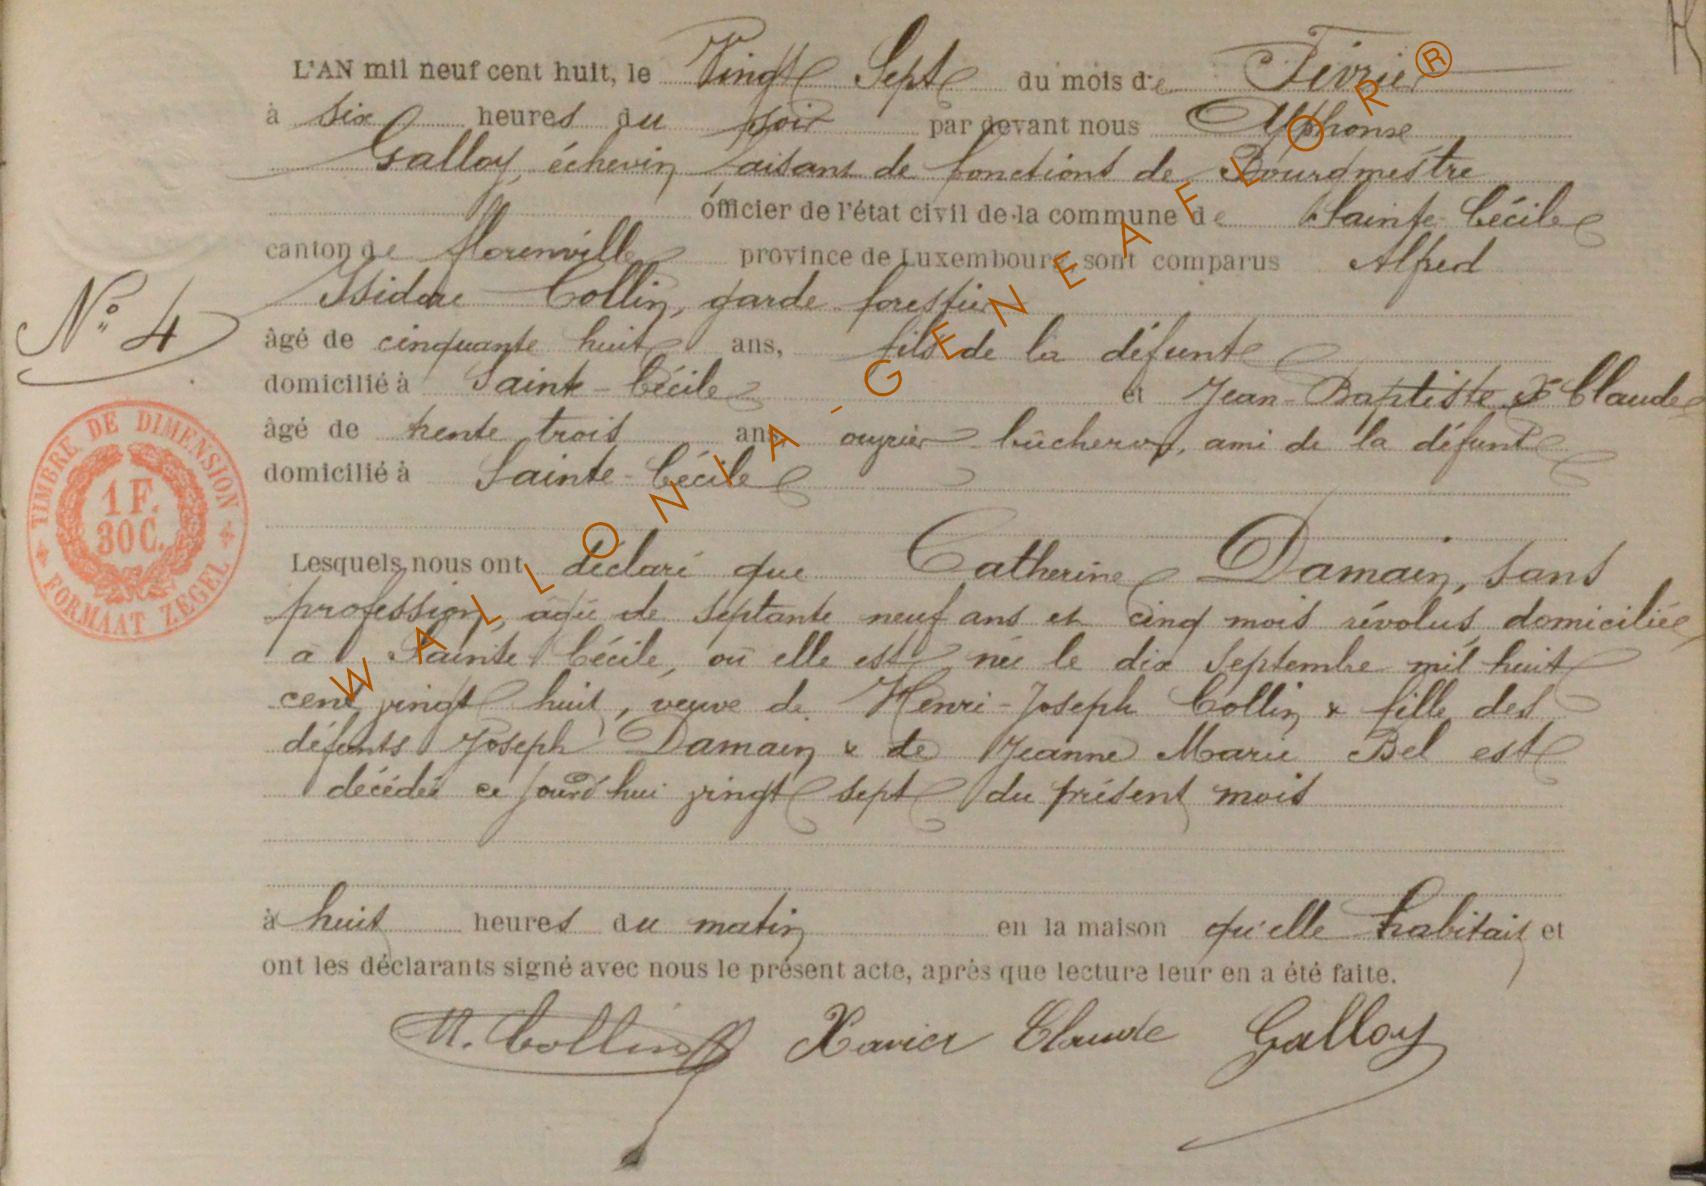 L'AN mil neuf cent huit, le Vingt Sept du mois de Février
à six heures du soir par devant nous Alphonse
Galloy, échevin faisant de fonctions de Bourgmestre
officier de l'état civil de la commune de Sainte-Cécile
canton de florenville province de Luxembourg sont comparus Alfred
Isidore Collin, garde forestier
N° 4
âgé de cinquante huit ans, fils de la défunte
domicilié à Sainte-Cécile et Jean-Baptiste X Claude
âgé de trente trois ans ouvrier bûcheron, ami de la défunte
domicilié à Sainte-Cécile
TIMBRE DE DIMENSION
1 F.
30 C.
FORMAAT ZEGEL
Lesquels nous ont déclaré que Catherine Damain, sans
profession, agée de septante neuf ans et cinq mois révolus, domiciliée
à Sainte Cécile, où elle est née le dix septembre mil huit
cent vingt huit, veuve de Henri-Joseph Collin & fille des
défunts Joseph Damain & de Jeanne Marie Bel est
décédée ce jourd'hui vingt sept du présent mois
à huit heures du matin en la maison qu'elle habitait et
ont les déclarants signé avec nous le présent acte, après que lecture leur en a été faite.
A. Collin Xavier Claude Galloy
WALLONIA-GENEAFLOR®